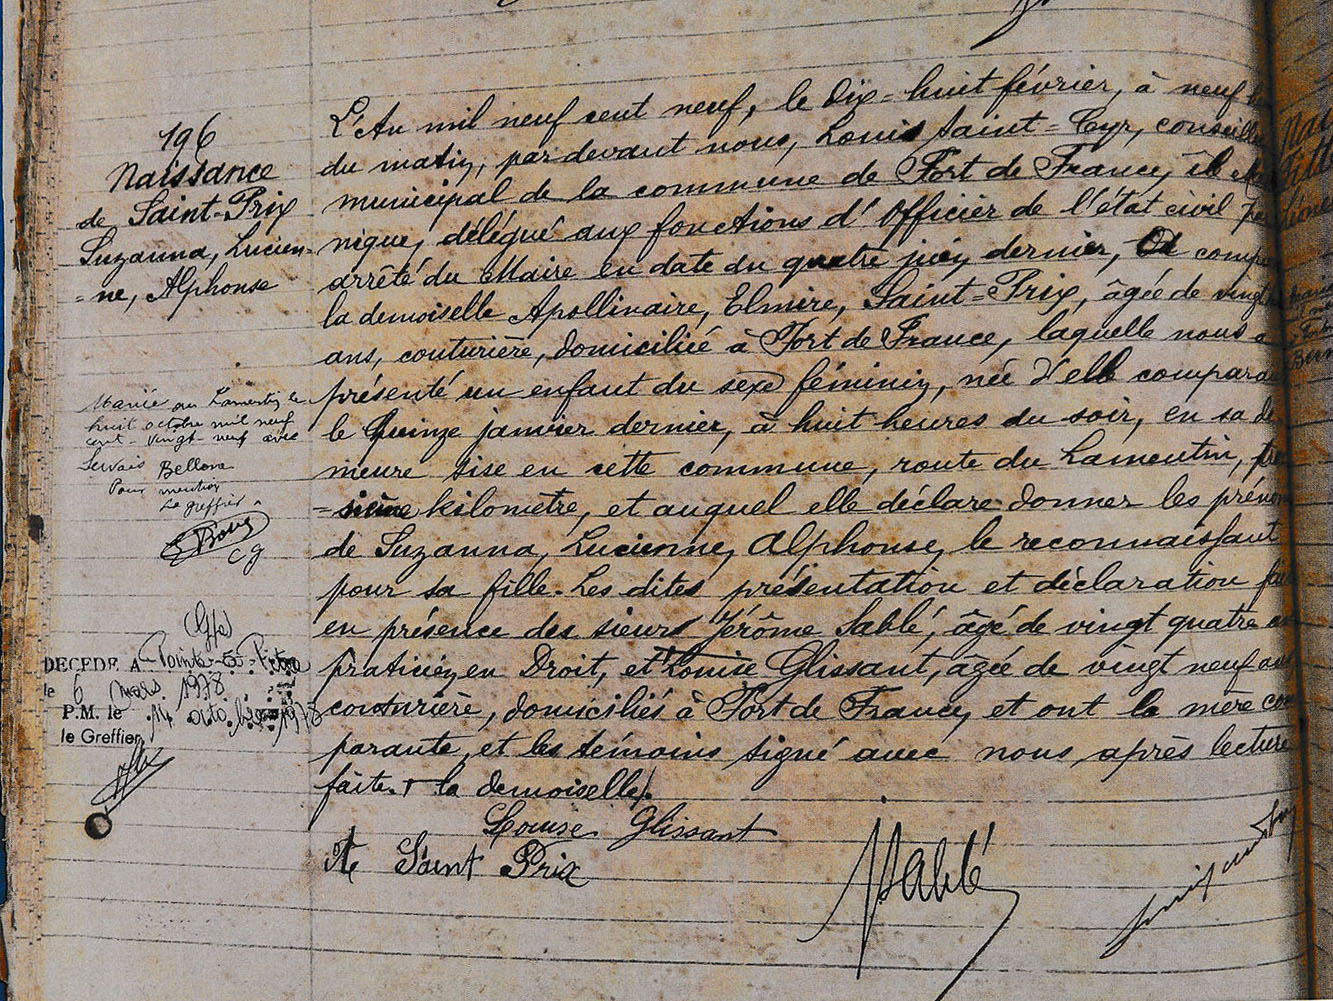 196
Naissance
de Saint-Prix
Suzanna, Lucien-
-ne, Alphonse
Mariée au Lamentin le
huit octobre mil neuf
cent-vingt-neuf avec
Servais Bellone
Pour mention
Le greffier
DECEDE A Pointe-à-Pitre
le 6 mars 1978
P.M. le 14
le Greffier
L'An mil neuf cent neuf, le dix-huit février, à neuf
du matin, par devant nous, Louis Saint-Cyr, conseille
municipal de la commune de Fort de France, île
nique, délégué aux fonctions d'Officier de l'état civil
arrêté du Maire en date du quatre juin dernier, a comp
la demoiselle Apollinaire, Elmire, Saint-Prix, âgée de vingt
ans, couturière, domiciliée à Fort de France, laquelle nous a
présenté un enfant du sexe féminin, née d'elle compara
le quinze janvier dernier, à huit heures du soir, en sa de
meure sise en cette commune, route du Lamentin,
kilomètre, et auquel elle déclare donner les prénom
de Suzanna, Lucienne, Alphonse, le reconnaissant
pour sa fille. Les dites présentation et déclaration
en présence des sieurs Jérôme Sablé, âgé de vingt quatre
praticien en Droit, et Louise Glissant, âgée de vingt neuf ans
couturière, domiciliés à Fort de France, et ont la mère com
parante, et les témoins signé avec nous après lecture
faite. + la demoiselle.
Louise Glissant
Saint Prix
Sablé